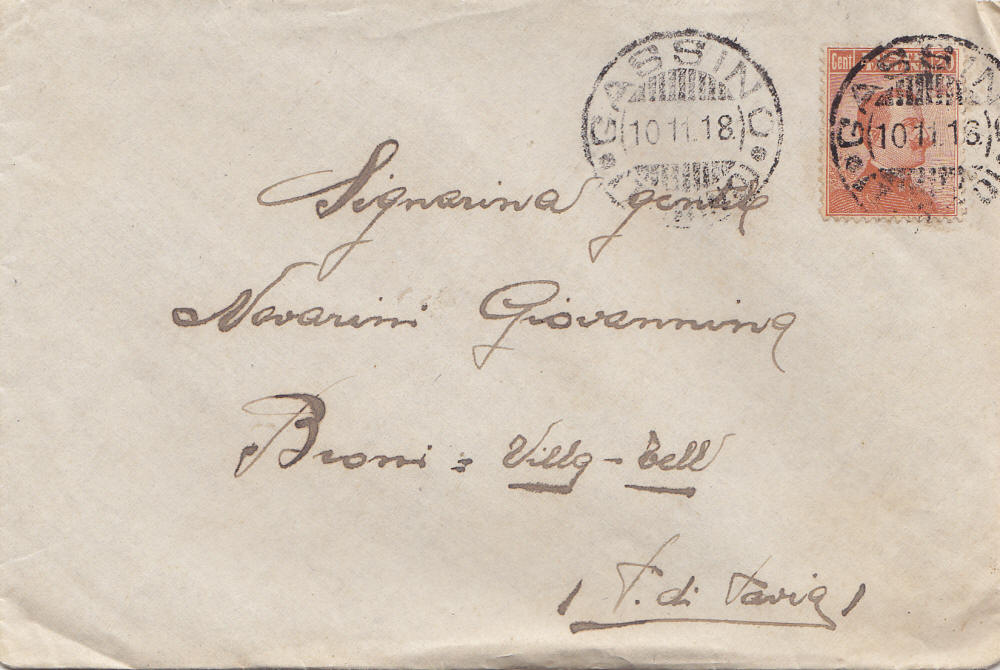 GASSINO
10 11. 18.
Cent
GASSINO
10 11. 18.
Signorina gentile
Navarini Giovannina
Broni = Villa - Tell
( P. di Pavia )